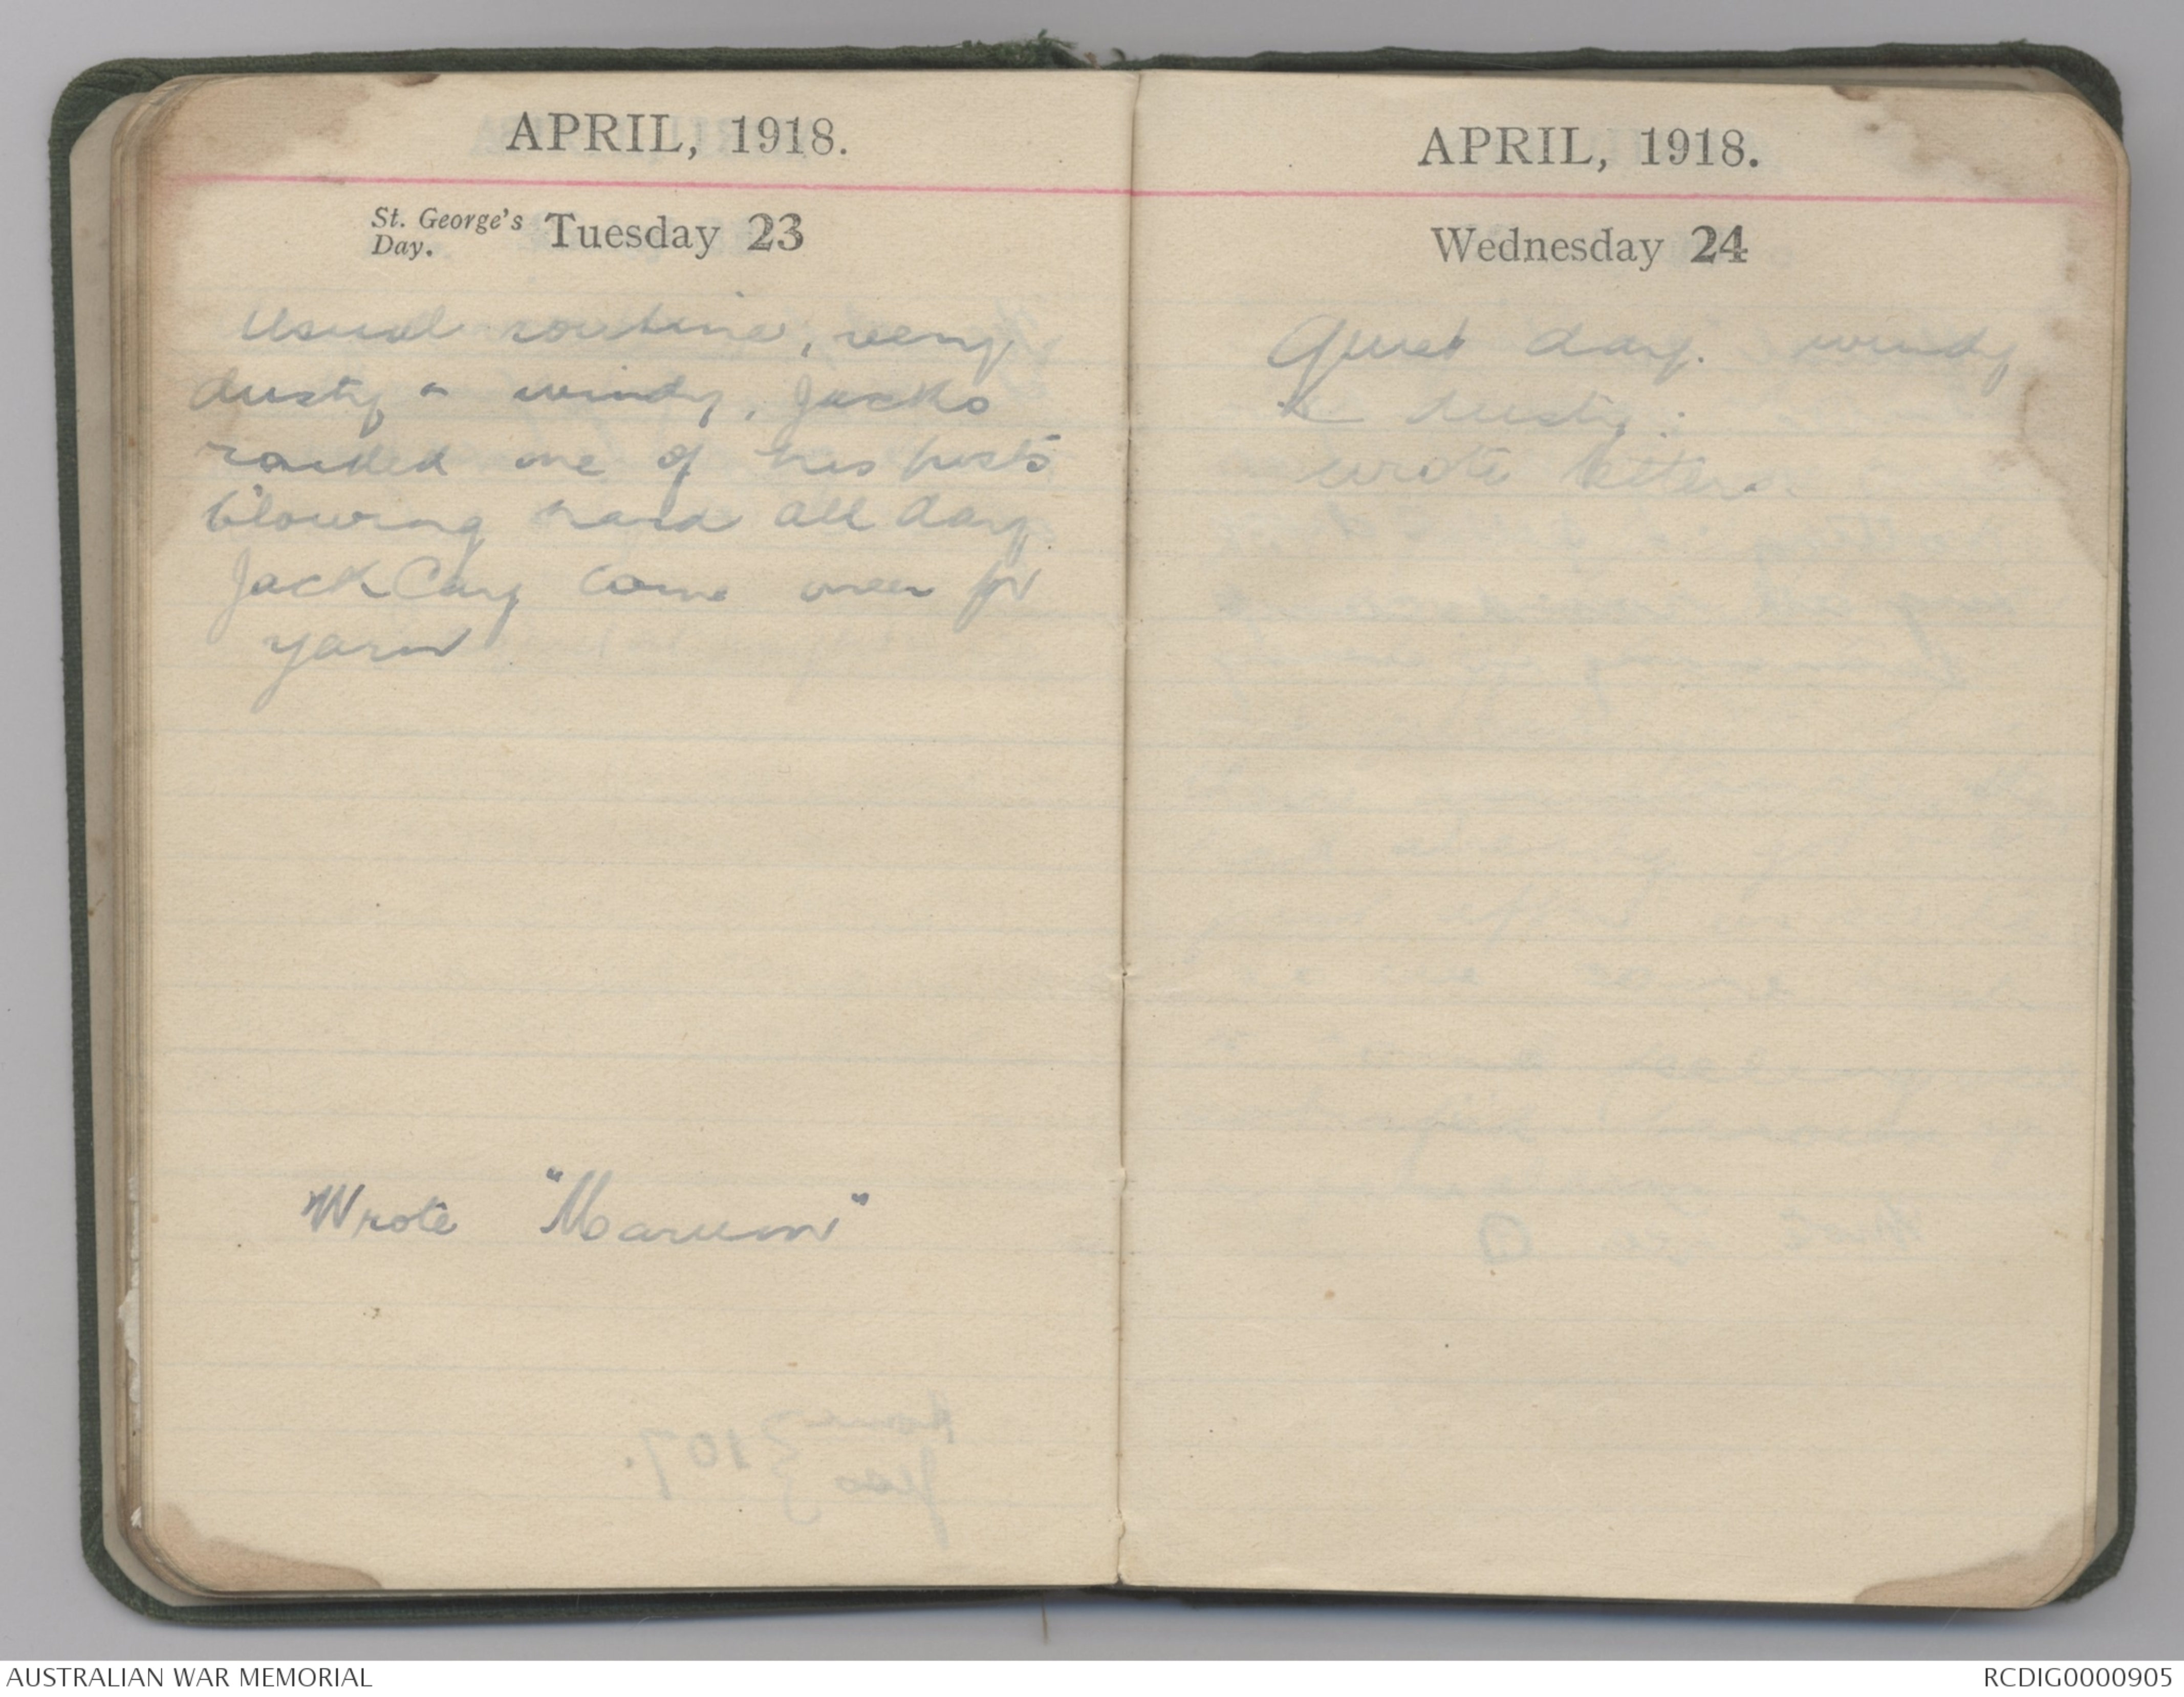 APRIL, 1918.
St. George's Day. Tuesday 23
Usual routine, very
dusty & windy, Jacko
raided one of his posts
blowing hard all day
Jack Cary come over for
yarn
Wrote "Marum"
APRIL, 1918.
Wednesday 24
Quiet day. windy
& dusty.
wrote letters.
AUSTRALIAN WAR MEMORIAL
RCDIG0000905